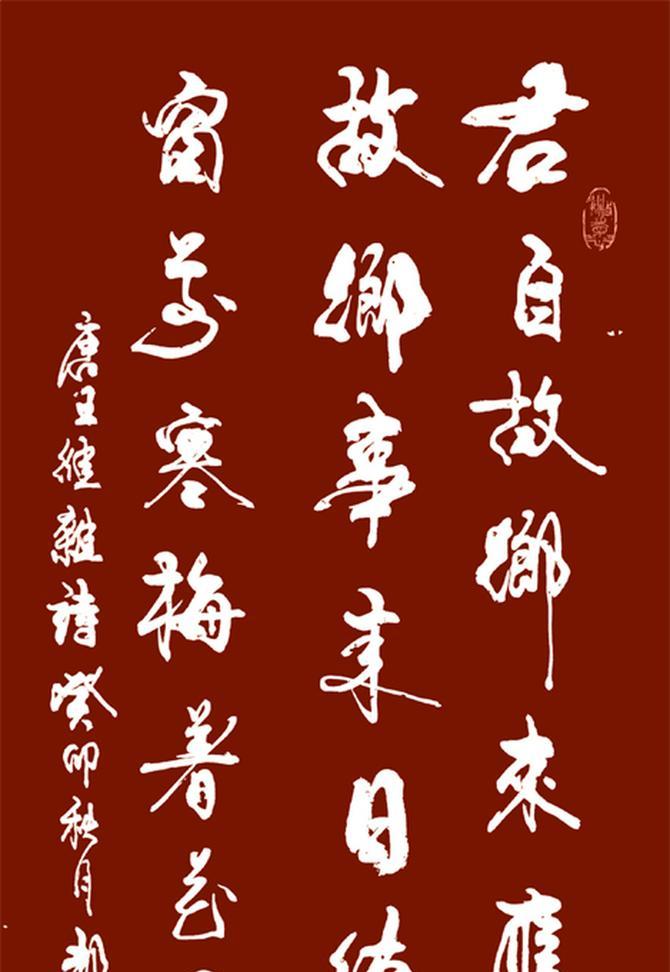 君自故鄉來應
故鄉事来日
窗前寒梅着花
唐王維雜詩癸卯秋月